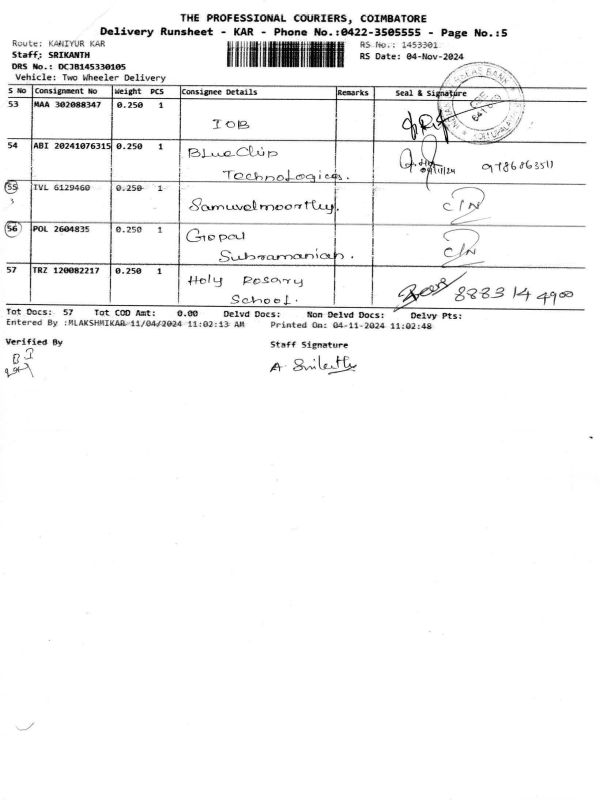 THE PROFESSIONAL COURIERS, COIMBATORE
Delivery Runsheet - KAR - Phone No.:0422-3505555 - Page No.:5
Route: KANIYUR KAR RS No.: 1453301
Staff: SRIKANTH RS Date: 04-Nov-2024
DRS No.: DCJB145330105
Vehicle: Two Wheeler Delivery
S No Consignment No Weight PCS Consignee Details Remarks Seal & Signature
53 MAA 302088347 0.250 1
IOB
54 ABI 20241076315 0.250 1 BLue Chip
Technologies. 9786863511
55 IVL 6129460 0.250 1 Samuvelmoorthy. C/N
56 POL 2604835 0.250 1 Gopal
Subramanian. C/N
57 TRZ 120082217 0.250 1 Holy Rosary
School. 8883144900
Tot Docs: 57 Tot COD Amt: 0.00 Delvd Docs: Non Delvd Docs: Delvy Pts:
Entered By :MLAKSHMIKAR 11/04/2024 11:02:13 AM Printed On: 04-11-2024 11:02:48
Verified By Staff Signature